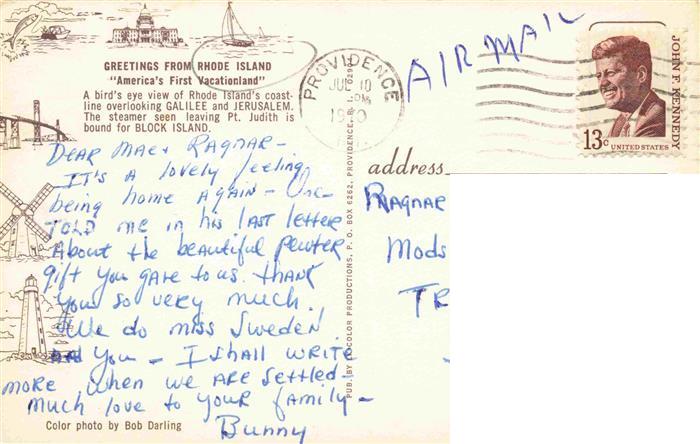 GREETINGS FROM RHODE ISLAND
"America's First Vacationland"
A bird's eye view of Rhode Island's coast-
line overlooking GALILEE and JERUSALEM.
The steamer seen leaving Pt. Judith is
bound for BLOCK ISLAND.
DEAR MAE + RAGNAR -
It's A lovely feeling
being home AGAIN -
TOLD me in his last letter
About the beautiful pewter
gift you gave to us. thank
you so very much.
We do miss Sweden
and you - I shall write
more when we are settled -
Much love to your family -
Bunny
Color photo by Bob Darling
PROVIDENCE
JUL 10
PM
AIR MAIL
JOHN F. KENNEDY
13c UNITED STATES
address
Ragnar
Mods
TR